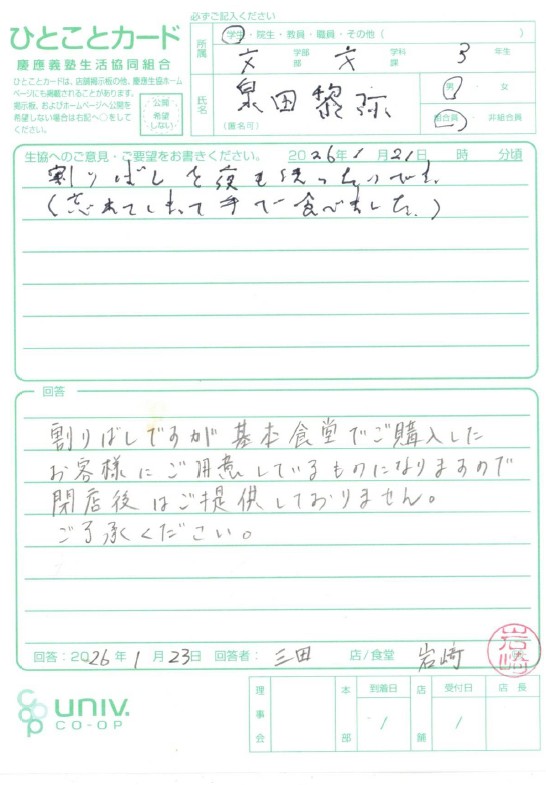 必ずご記入ください
ひとことカード
慶應義塾生活協同組合
ひとことカードは、店舗掲示板の他、慶應生協ホームページにも掲載されることがあります。
掲示板、およびホームページへ公開を希望しない場合は右記へ○をしてください。
公開
希望
しない
所属
学生・院生・教員・職員・その他( )
文 学部 部 文 学科 課 3 年生
氏名
(匿名可)
泉田黎弥
男・女
組合員・非組合員
生協へのご意見・ご要望をお書きください。 2026年1月21日 時 分頃
割りばしを夜も使いたいです。
(忘れてしまって手で食べました。)
回答
割りばしですが基本食堂でご購入した
お客様にご用意しているものになりますので
閉店後はご提供しておりません。
ご了承ください。
回答:2026年1月23日 回答者: 三田 店/食堂 岩崎
岩崎
co op univ.
CO-OP
理事会
本部
到着日
/
店舗
受付日
/
店長